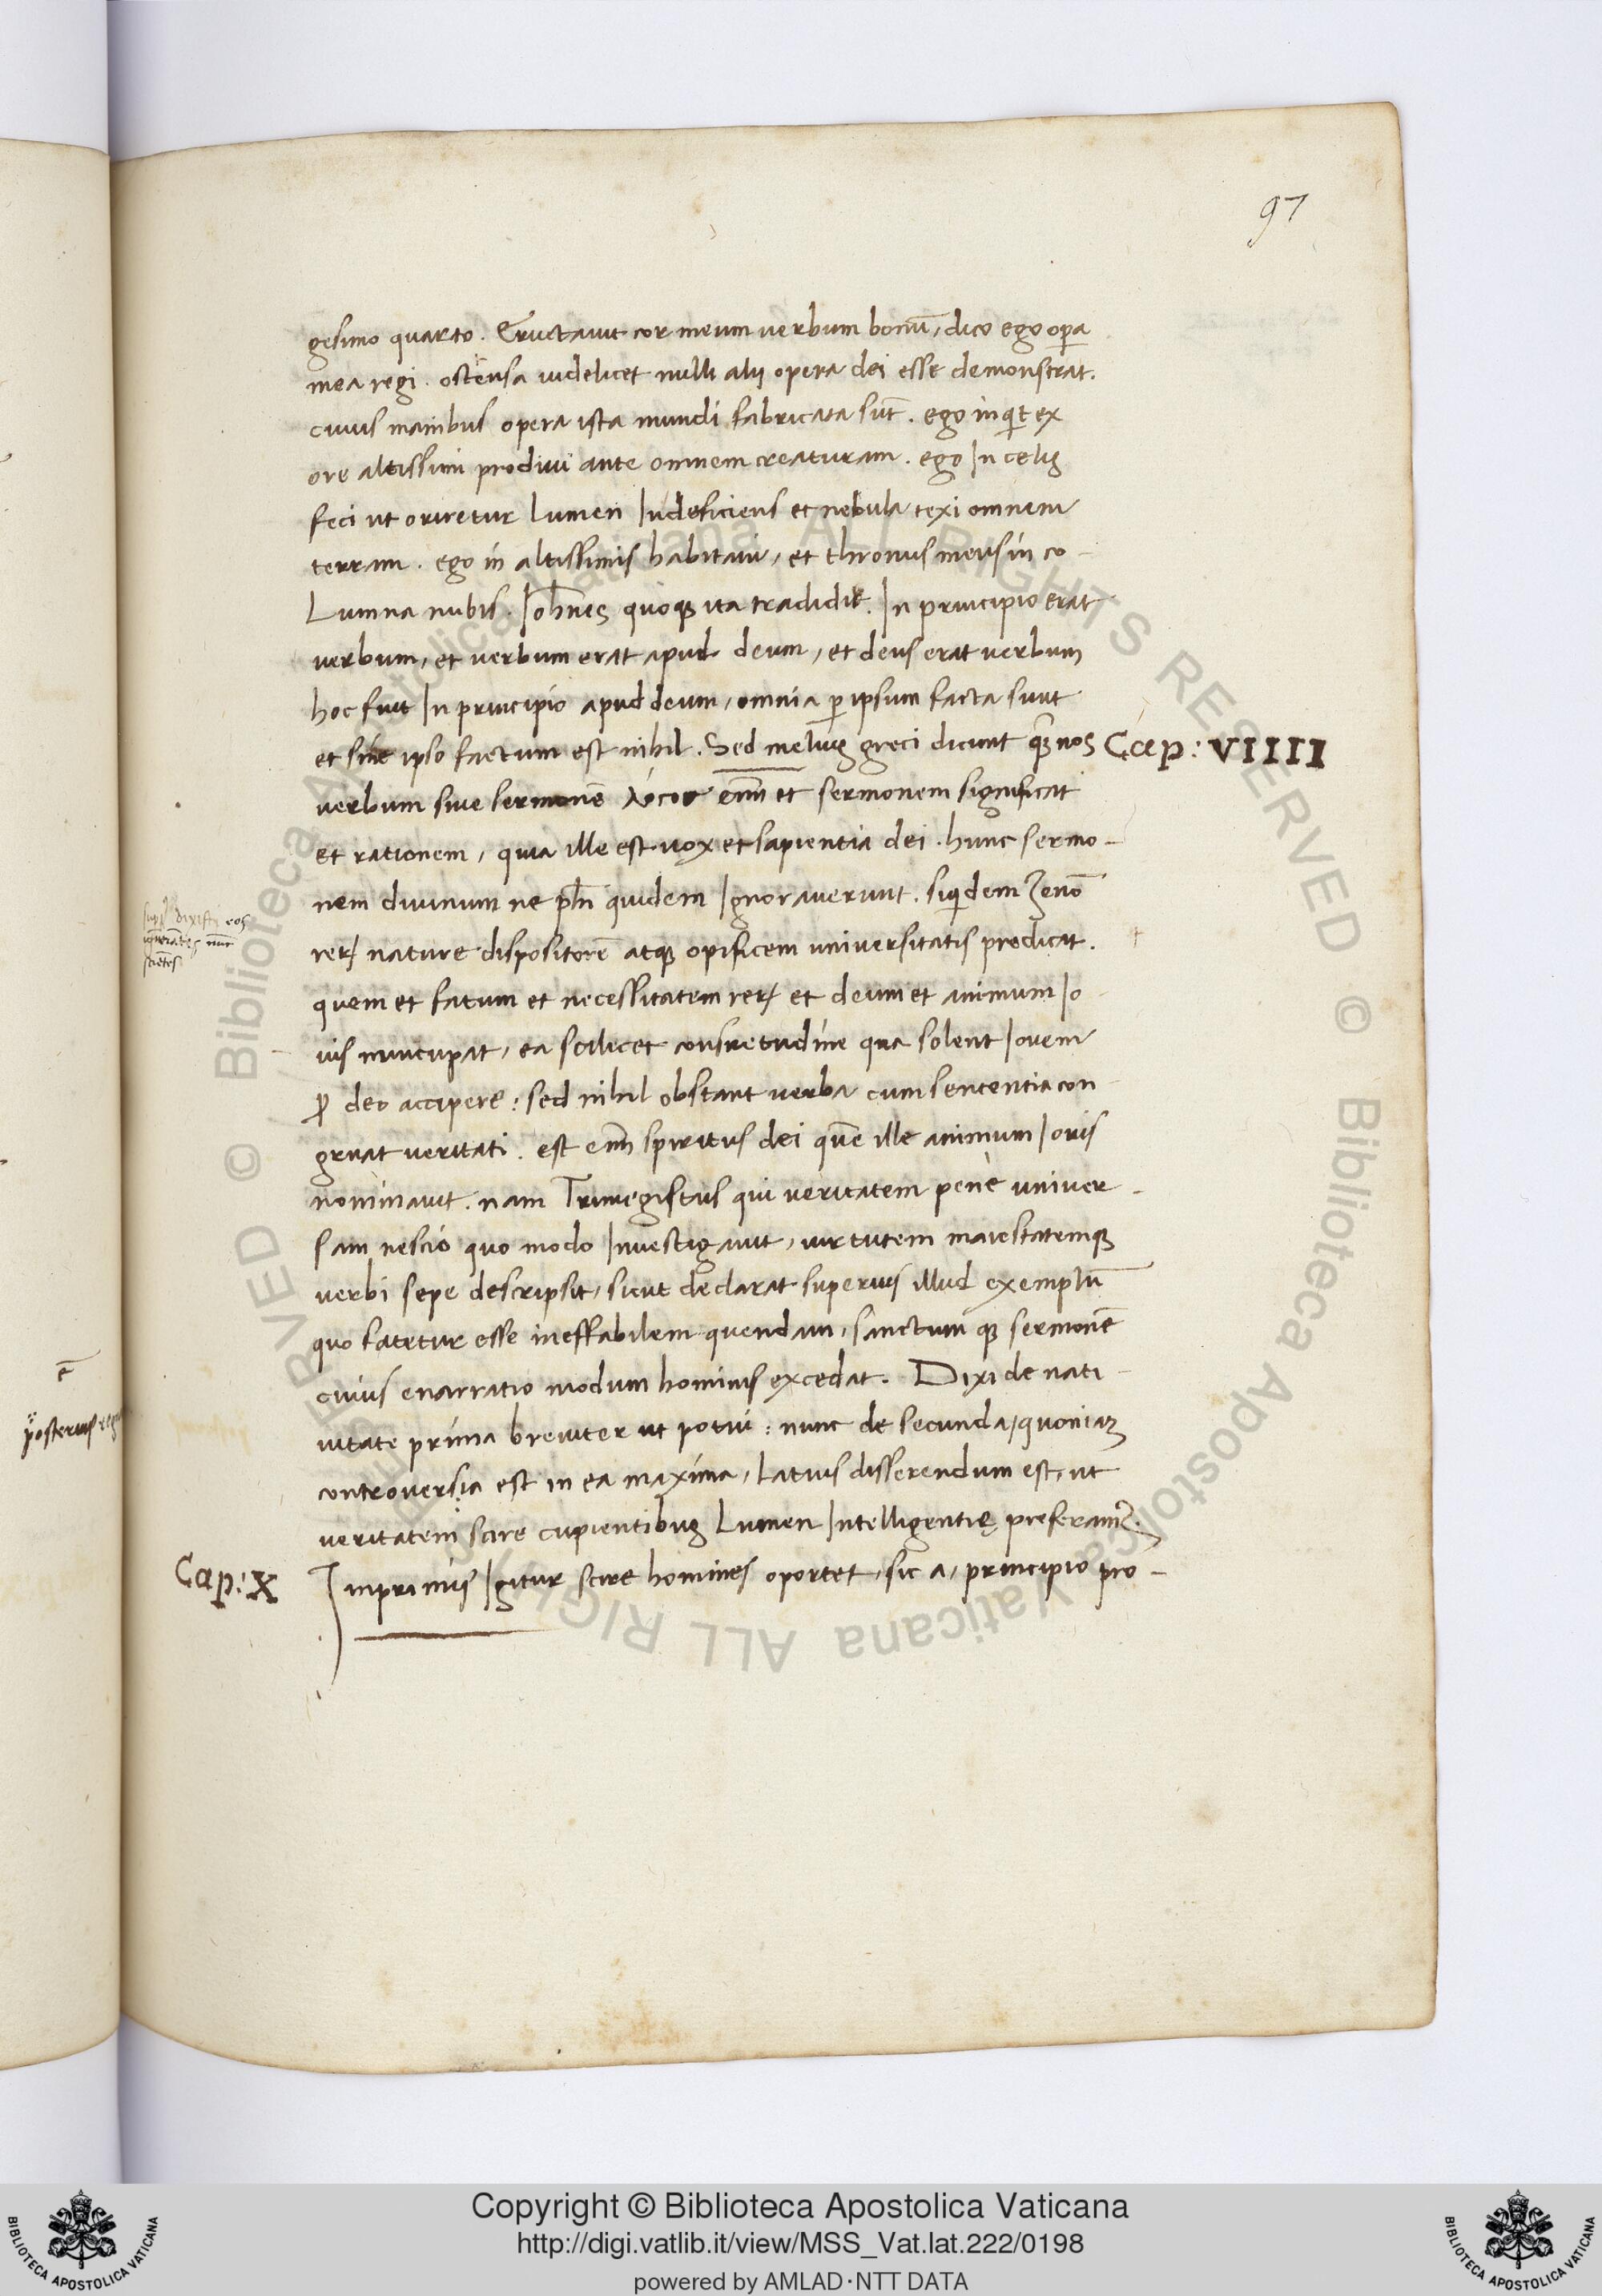 97
gesimo quarto. Eructauit cor meum uerbum bonū, dico ego opa
mea regi. ostensa uidelicet nulli alij opera dei esse demonstrat.
cuius manibus opera ista mundi fabricata sūt. ego inqt ex
ore altissimi prodiui ante omnem creaturam. ego In celis
feci ut oriretur lumen Indeficiens et nebula texi omnem
terram. ego in altissimis habitaui, et thronus meus in co-
Lumna nubis. Iohñes quoqꝫ ita tradidit. In principio erat
uerbum, et uerbum erat apud deum, et deus erat uerbum
hoc fuit In principio apud deum, omnia ꝑ ipsum facta sunt
et sine ipso factum est nihil. Sed melius greci dicunt qꝫ nos
Cap: VIIII
uerbum siue sermonē λόγος eñ et sermonem significat
et rationem, quia ille est uox et sapientia dei. hunc sermo-
nem diuinum ne phi quidem Ignorauerunt. siqdem Zenō
sup dixisti eos
ignorātes nunc
sciētes
reꝝ nature dispositorē atqꝫ opificem uniuersitatis predicat.
quem et fatum et necessitatem reꝝ et deum et animum Io
uis nuncupat, ea scilicet consuetudine qua solent Iouem
ꝓ deo accipere: sed nihil obstant uerba cum sententia con-
gruat ueritati. est eñ spiritus dei quē ille animum Iouis
nominauit. nam Trimegistus qui ueritatem pene uniuer-
sam nescio quo modo Inuestigauit, uirtutem maiestatemqꝫ
uerbi sepe descripsit, sicut declarat superius illud exemplū
quo fatetur esse ineffabilem quendam, sanctum qꝫ sermonē
cuius enarratio modum hominis excedat. Dixi de nati-
uitate prima breuiter ut potui: nunc de secunda, quoniaꝫ
controuersia est in ea maxima, Latius disserendum est, ut
ueritatem scire cupientibus Lumen Intelligentię preferamꝰ.
Cap: X
Inprimis Igitur scire homines oportet, sic a, principio pro-
ē
posterius
Copyright © Biblioteca Apostolica Vaticana
http://digi.vatlib.it/view/MSS_Vat.lat.222/0198
powered by AMLAD·NTT DATA
BIBLIOTECA APOSTOLICA VATICANA
BIBLIOTECA APOSTOLICA VATICANA
© Biblioteca Apostolica Vaticana ALL RIGHTS RESERVED © Biblioteca Apostolica Vaticana ALL RIGHTS RESERVED